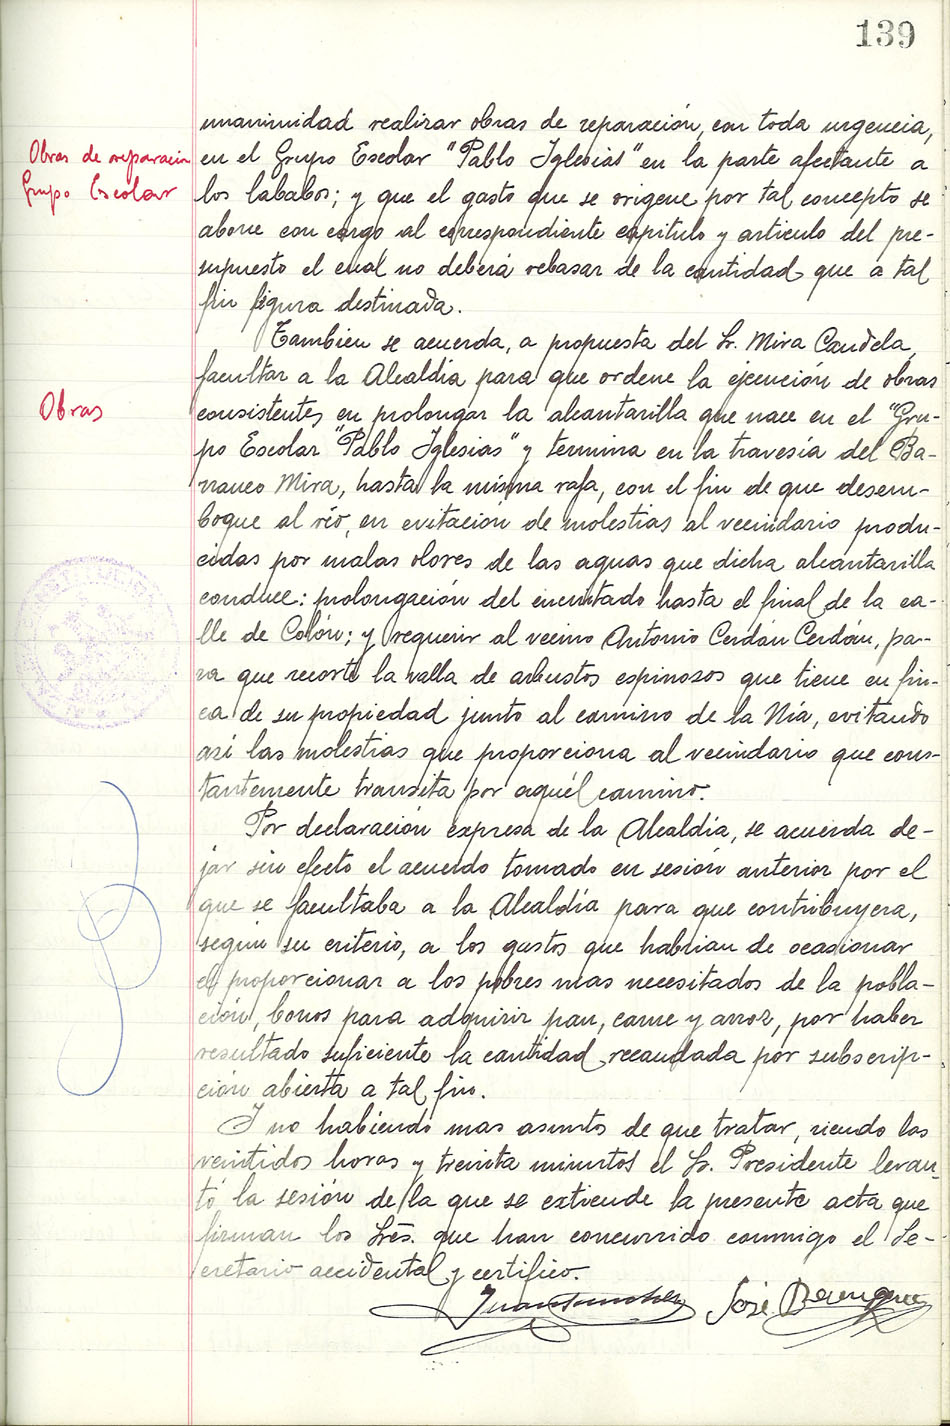 139
unanimidad realizar obras de reparación, con toda urgencia,
Obras de reparación
en el Grupo Escolar "Pablo Iglesias" en la parte afectante a
Grupo Escolar
los lababos; y que el gasto que se origene por tal concepto se
abone con cargo al correspondiente capitulo y articulo del pre-
supuesto el cual no deberá rebasar de la cantidad que a tal
fin figura destinada.
Tambien se acuerda, a propuesta del Sr. Mira Candela,
facultar a la Alcaldía para que ordene la ejecución de obras
Obras
consistentes en prolongar la alcantarilla que nace en el "Gru-
po Escolar "Pablo Iglesias" y termina en la travesía del Ba-
rranco Mira, hasta la misma rafa, con el fin de que desem-
boque al río, en evitación de molestias al vecindario produ-
cidas por malos olores de las aguas que dicha alcantarilla
conduce: prolongación del encintado hasta el final de la ca-
lle de Colón; y requerir al vecino Antonio Cerdán Cerdán, pa-
ra que recorte la valla de arbustos espinosos que tiene en fin-
ca de su propiedad junto al camino de la Nía, evitando
así las molestias que proporciona al vecindario que cons-
tantemente transita por aquél camino.
Por declaración expresa de la Alcaldía, se acuerda de-
jar sin efecto el acuerdo tomado en sesión anterior por el
que se facultaba a la Alcaldía para que contribuyera,
según su criterio, a los gastos que habrian de ocasionar
el proporcionar a los pobres mas necesitados de la pobla-
ción, bonos para adquirir pan, carne y arroz, por haber
resultado suficiente la cantidad recaudada por subscrip-
ción abierta a tal fin.
Y no habiendo mas asuntos de que tratar, siendo las
veintidos horas y treinta minutos el Sr. Presidente levan-
tó la sesión de la que se extiende la presente acta que
firman los Sres. que han concurrido conmigo el Se-
cretario accidental y certifico.
Juan Sanchez José Berenguer